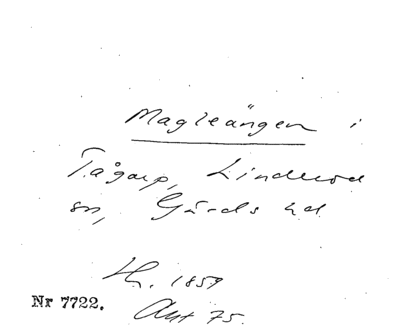 Magleängen i
Tågarp, Linderöd
sn, Gärds hd
Lh. 1859
Nr 7722. Akt 75.